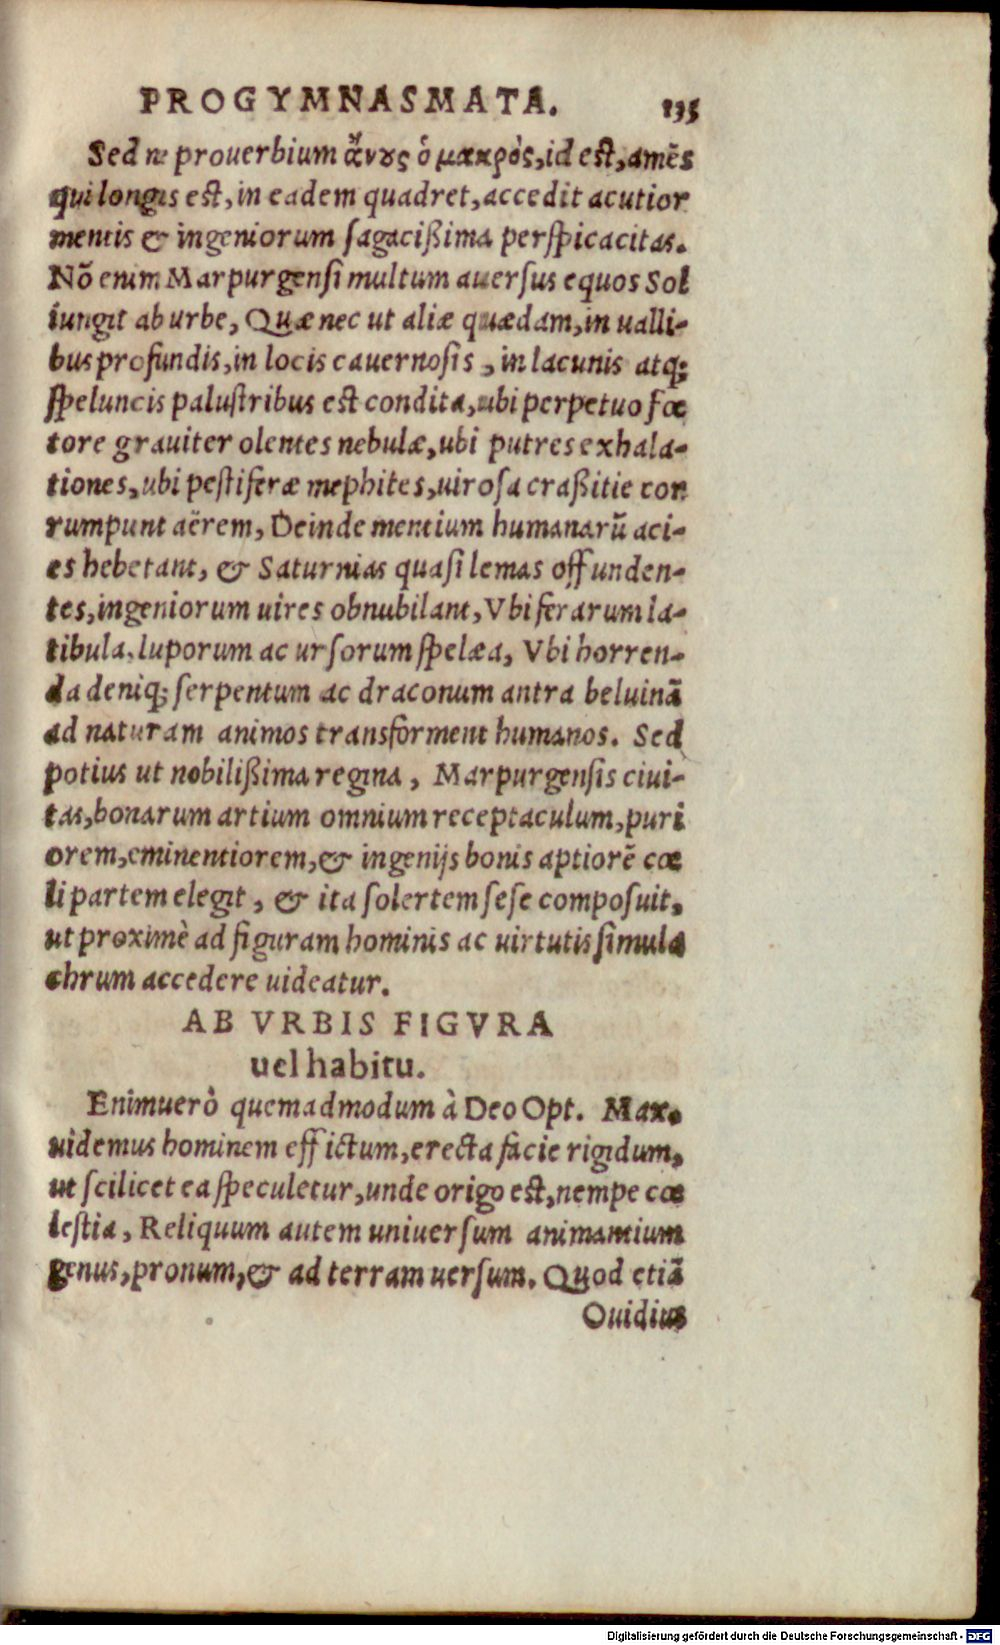 PROGYMNASMATA. 135
Sed ne prouerbium ἄνους ὁ μακρός, id est, amẽs
qui longus est, in eadem quadret, accedit acutior
mentis & ingeniorum ſagacißima perſpicacitas.
Nõ enim Marpurgenſi multum auerſus equos Sol
iungit ab urbe, Quæ nec ut aliæ quædam, in ualli-
bus profundis, in locis cauernoſis, in lacunis atq;
ſpeluncis paluſtribus est condita, ubi perpetuo fœ
tore grauiter olentes nebulæ, ubi putres exhala-
tiones, ubi peſtiferæ mephites, uiroſa craßitie cor
rumpunt aërem, Deinde mentium humanarũ aci-
es hebetant, & Saturnias quaſi lemas offunden-
tes, ingeniorum uires obnubilant, Vbi ferarum la-
tibula, luporum ac urſorum ſpelæa, Vbi horren-
da deniq; ſerpentum ac draconum antra beluinã
ad naturam animos transforment humanos. Sed
potius ut nobilißima regina, Marpurgenſis ciui-
tas, bonarum artium omnium receptaculum, puri
orem, eminentiorem, & ingenijs bonis aptiorẽ cœ
li partem elegit, & ita ſolertem ſeſe compoſuit,
ut proximè ad figuram hominis ac uirtutis ſimula
chrum accedere uideatur.
AB VRBIS FIGVRA
uel habitu.
Enimuerò quemadmodum à Deo Opt. Max.
uidemus hominem effictum, erecta facie rigidum,
ut ſcilicet ea ſpeculetur, unde origo est, nempe cœ
leſtia, Reliquum autem uniuerſum animantium
genus, pronum, & ad terram uerſum. Quod etiã
Ouidius
Digitalisierung gefördert durch die Deutsche Forschungsgemeinschaft - DFG